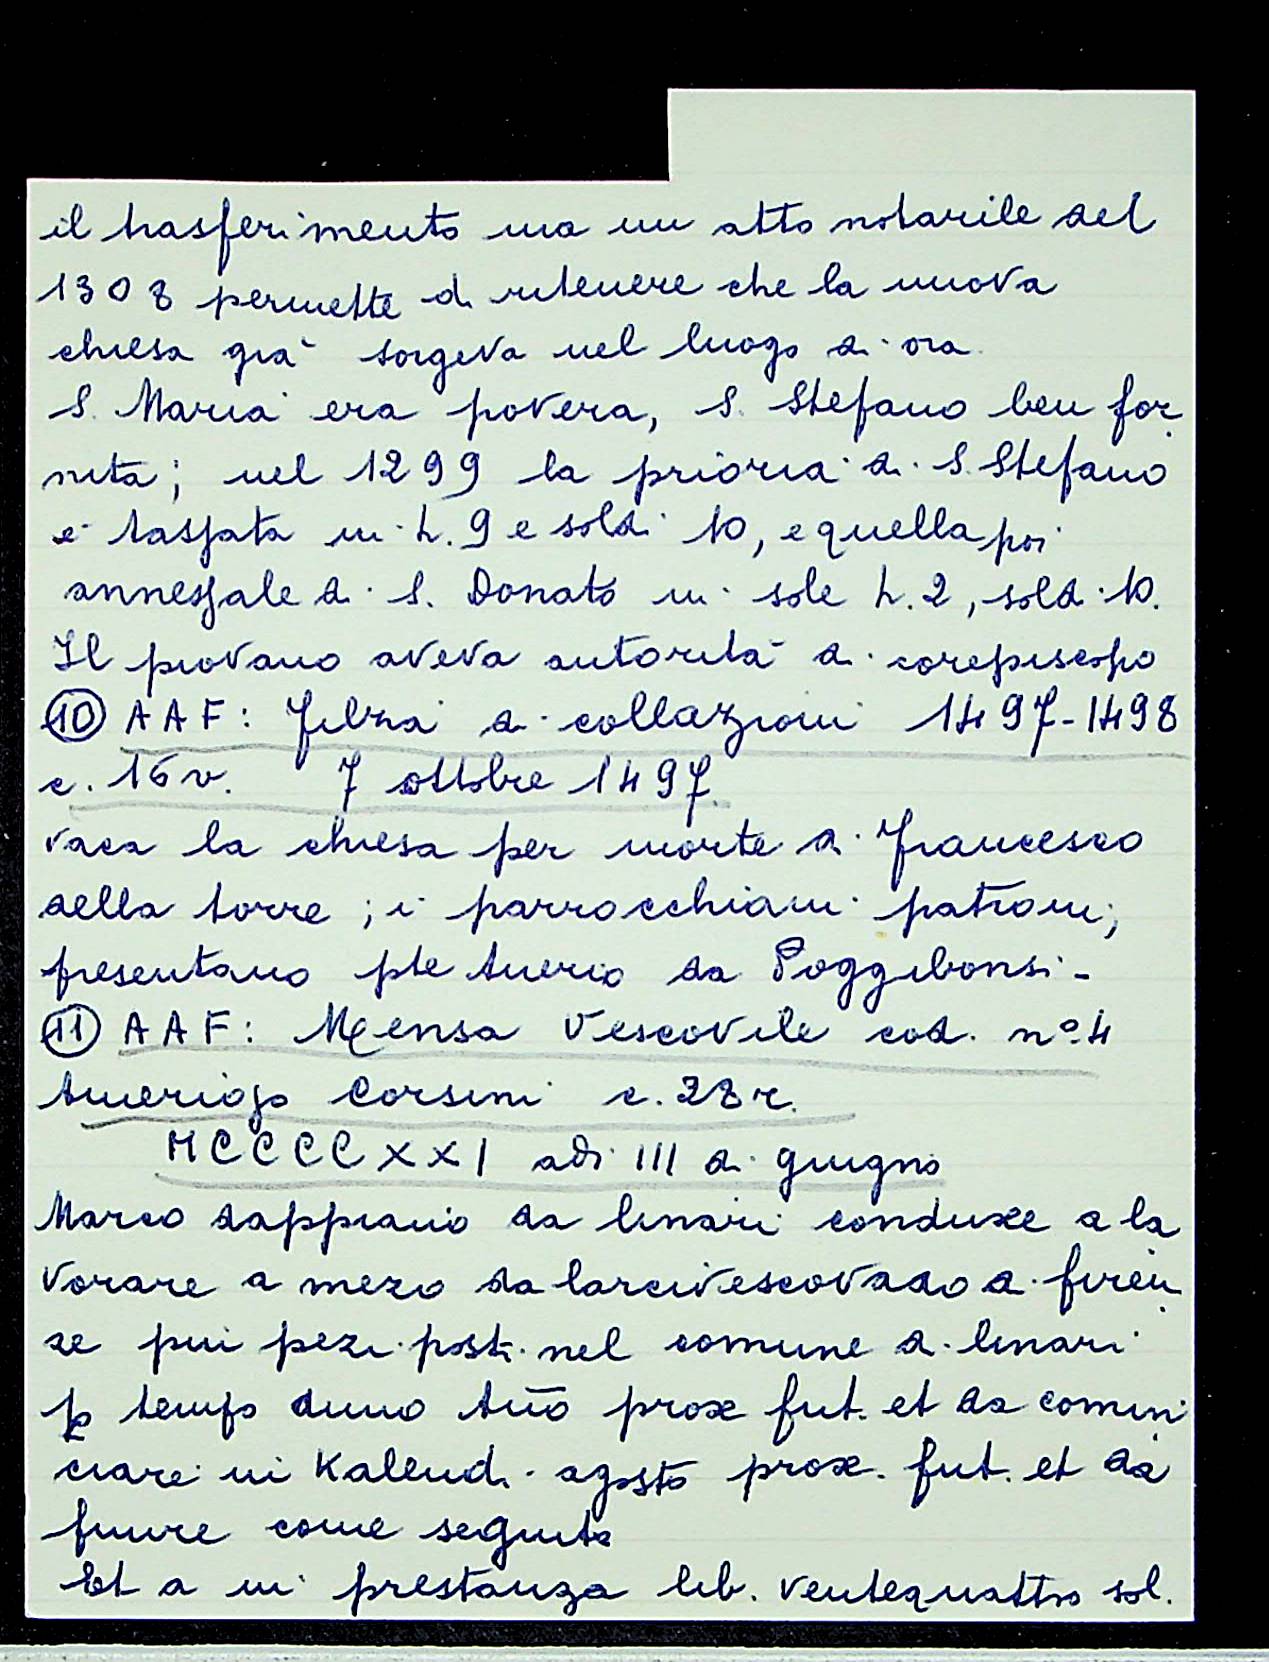 il trasferimento ma un atto notarile del
1308 permette di ritenere che la nuova
chiesa già sorgeva nel luogo di ora.
S. Maria era povera, S. Stefano ben for
nita; nel 1299 la prioria di S. Stefano
è tassata in L. 9 e soldi 10, e quella poi
annessale di S. Donato in sole L. 2, soldi 10.
Il piovano aveva autorità di corepiscopo
⑩ AAF: Filza di collazioni 1497-1498
c. 16 v. 7 ottobre 1497
vaca la chiesa per morte di Francesco
della torre; i parrocchiani patroni;
presentano pte Amerio da Poggibonsi-
⑪ AAF: Mensa Vescovile cod. nº 4
Amerigo Corsini c. 28 r.
MCCCCXXI adi III di giugno
Marco dappiano da linari conduxe a la
vorare a mezo da larcivescovado di firen
ze più pezi posti nel comune di linari
p tempo duno año prox fut. et da comin
ciare in Kalendi agosto prox. fut. et da
finire come seguita
Et a in prestanza lib. ventequattro sol.